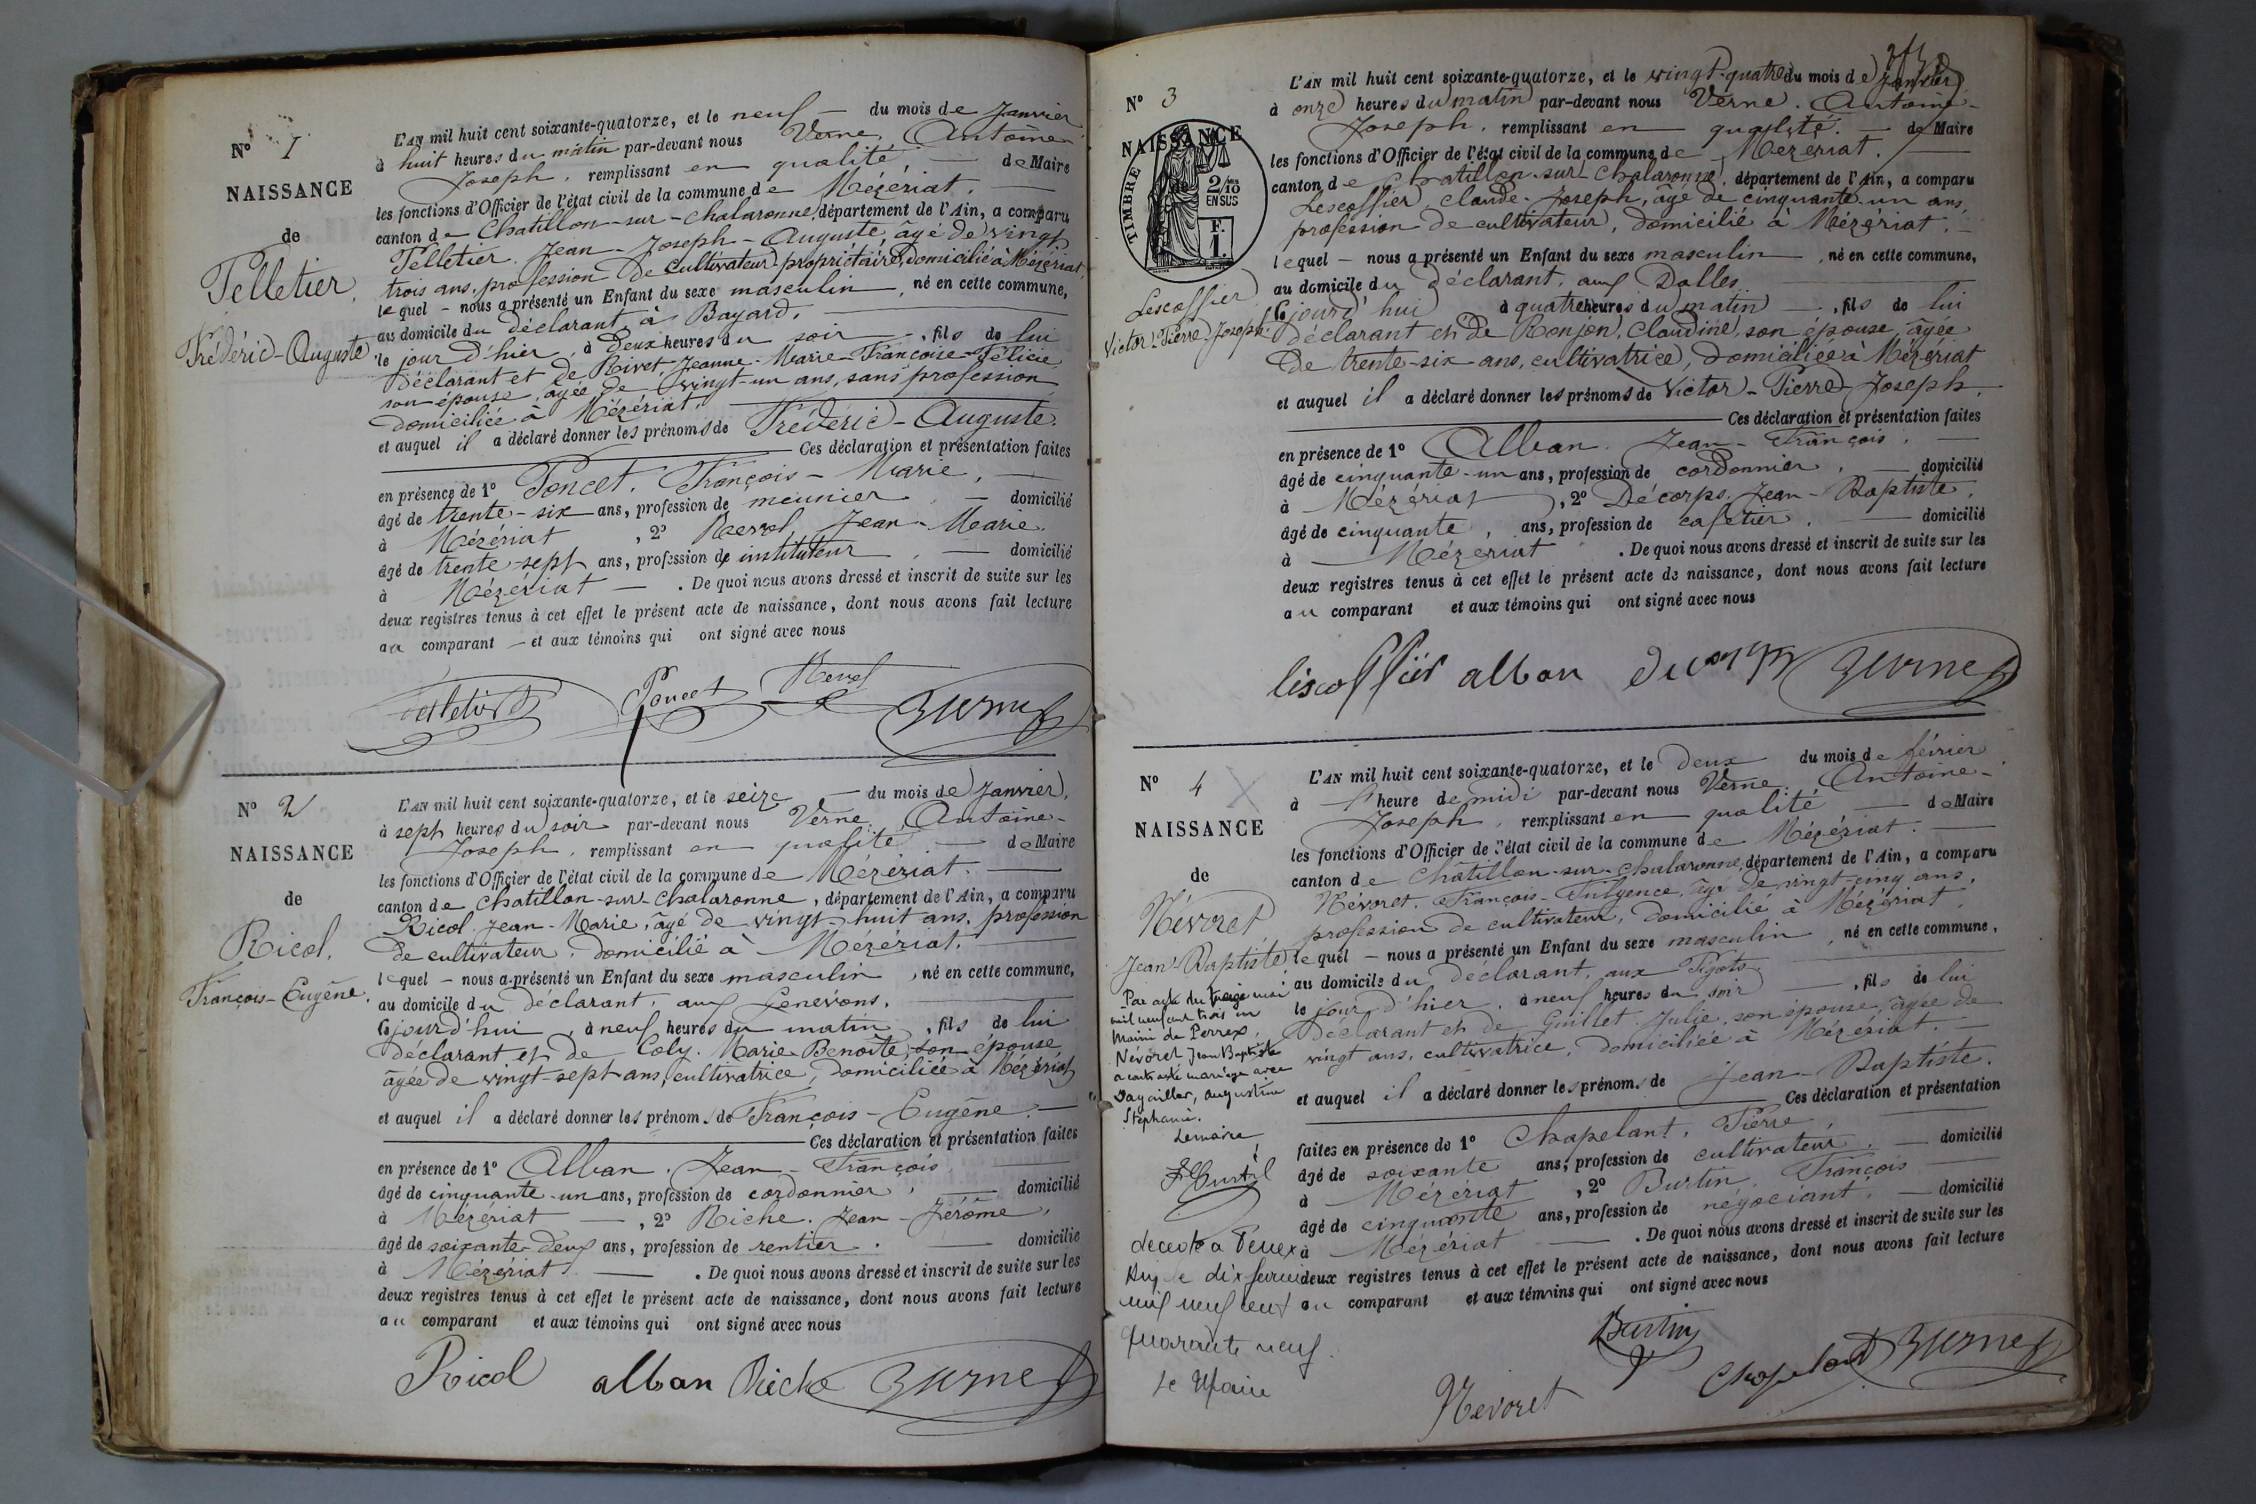 N° 1
NAISSANCE
de
Pelletier,
Frédéric-Auguste
L'AN mil huit cent soixante-quatorze, et le neuf du mois de Janvier
à huit heures du matin par-devant nous Verne, Antoine-
Joseph, remplissant en qualité, de Maire
les fonctions d'Officier de l'état civil de la commune de Mézériat,
canton de Chatillon-sur-Chalaronne, département de l'Ain, a comparu
Pelletier, Jean-Joseph-Auguste, âgé de vingt
trois ans, profession de cultivateur-propriétaire, domicilié à Mézériat,
lequel - nous a présenté un Enfant du sexe masculin, né en cette commune,
au domicile du déclarant à Bayard,
le jour d'hier, à deux heures du soir, fils de lui
déclarant et de Rivet, Jeanne-Marie-Françoise-Félicie,
son épouse, âgée de vingt-un ans, sans profession
domiciliée à Mézériat,
et auquel il a déclaré donner les prénoms de Frédéric-Auguste.
Ces déclaration et présentation faites
en présence de 1° Poncet, François-Marie,
âgé de trente-six ans, profession de meunier, domicilié
à Mézériat, 2° Revel, Jean-Marie
âgé de trente-sept ans, profession de instituteur, domicilié
à Mézériat. De quoi nous avons dressé et inscrit de suite sur les
deux registres tenus à cet effet le présent acte de naissance, dont nous avons fait lecture
au comparant - et aux témoins qui ont signé avec nous
Poncet Revel Verne
N° 2
NAISSANCE
de
Ricol,
François-Eugène.
L'AN mil huit cent soixante-quatorze, et le seize du mois de Janvier,
à sept heures du soir par-devant nous Verne, Antoine-
Joseph, remplissant en qualité de Maire
les fonctions d'Officier de l'état civil de la commune de Mézériat.
canton de Chatillon-sur-Chalaronne, département de l'Ain, a comparu
Ricol Jean-Marie, âgé de vingt-huit ans, profession
de cultivateur, domicilié à Mézériat,
lequel - nous a présenté un Enfant du sexe masculin, né en cette commune,
au domicile du déclarant, aux Genevons,
cejourd'hui, à neuf heures du matin, fils de lui
déclarant et de Coly, Marie-Benoîte, son épouse
âgée de vingt-sept ans, cultivatrice, domiciliée à Mézériat
et auquel il a déclaré donner les prénoms de François-Eugène.
Ces déclaration et présentation faites
en présence de 1° Alban, Jean-François
âgé de cinquante-un ans, profession de cordonnier, domicilié
à Mézériat, 2° Riche, Jean-Jérôme,
âgé de soixante-deux ans, profession de rentier. domicilié
à Mézériat. De quoi nous avons dressé et inscrit de suite sur les
deux registres tenus à cet effet le présent acte de naissance, dont nous avons fait lecture
au comparant et aux témoins qui ont signé avec nous
Ricol alban Riche Verne
N° 3
NAISSANCE
de
TIMBRE
2/10
EN SUS
F.
1.
Lescoffier
Victor-Pierre-Joseph.
L'AN mil huit cent soixante-quatorze, et le vingt-quatre du mois de Janvier
à onze heures du matin par-devant nous Verne, Antoine-
Joseph, remplissant en qualité. de Maire
les fonctions d'Officier de l'état civil de la commune de Mézériat.
canton de Chatillon-sur-Chalaronne, département de l'Ain, a comparu
Lescoffier, Claude-Joseph, âgé de cinquante-un ans,
profession de cultivateur, domicilié à Mézériat.
lequel - nous a présenté un Enfant du sexe masculin, né en cette commune,
au domicile du déclarant, aux Dalles
Cejourd'hui à quatre heures du matin, fils de lui
déclarant et de Ronjon, Claudine, son épouse, âgée
de trente-six ans, cultivatrice, domiciliée à Mézériat
et auquel il a déclaré donner les prénoms de Victor-Pierre-Joseph.
Ces déclaration et présentation faites
en présence de 1° Alban, Jean-François,
âgé de cinquante-un ans, profession de cordonnier, domicilié
à Mézériat, 2° Décorps, Jean-Baptiste,
âgé de cinquante, ans, profession de cafetier, domicilié
à Mézériat. De quoi nous avons dressé et inscrit de suite sur les
deux registres tenus à cet effet le présent acte de naissance, dont nous avons fait lecture
au comparant et aux témoins qui ont signé avec nous
alban Verne
N° 4 X
NAISSANCE
de
Névoret
Jean-Baptiste
Par acte du treize mai
mil neuf cent trois en
Mairie de Perrex,
Névoret Jean Baptiste
a contracté mariage avec
Dagailler, Augustine
Stéphanie.
Le maire
décédé à Perrex
Ain le dix février
mil neuf cent
quarante neuf
Le Maire
L'AN mil huit cent soixante-quatorze, et le deux du mois de février
à l'heure de midi par-devant nous Verne, Antoine-
Joseph, remplissant en qualité de Maire
les fonctions d'Officier de l'état civil de la commune de Mézériat.
canton de Châtillon-sur-Chalaronne, département de l'Ain, a comparu
Névoret, François-Fulgence, âgé de vingt-cinq ans,
profession de cultivateur, domicilié à Mézériat,
lequel - nous a présenté un Enfant du sexe masculin, né en cette commune,
au domicile du déclarant, aux Pigots
le jour d'hier, à neuf heures du soir, fils de lui
déclarant et de Guillet Julie, son épouse, âgée de
vingt ans, cultivatrice, domiciliée à Mézériat.
et auquel il a déclaré donner les prénoms de Jean-Baptiste.
Ces déclaration et présentation
faites en présence de 1° Chapelant, Pierre
âgé de soixante ans, profession de cultivateur. domicilié
à Mézériat, 2° Burtin, François
âgé de cinquante ans, profession de négociant. domicilié
à Mézériat. De quoi nous avons dressé et inscrit de suite sur les
deux registres tenus à cet effet le présent acte de naissance, dont nous avons fait lecture
au comparant et aux témoins qui ont signé avec nous
Burtin
Nevoret Chapelant Verne